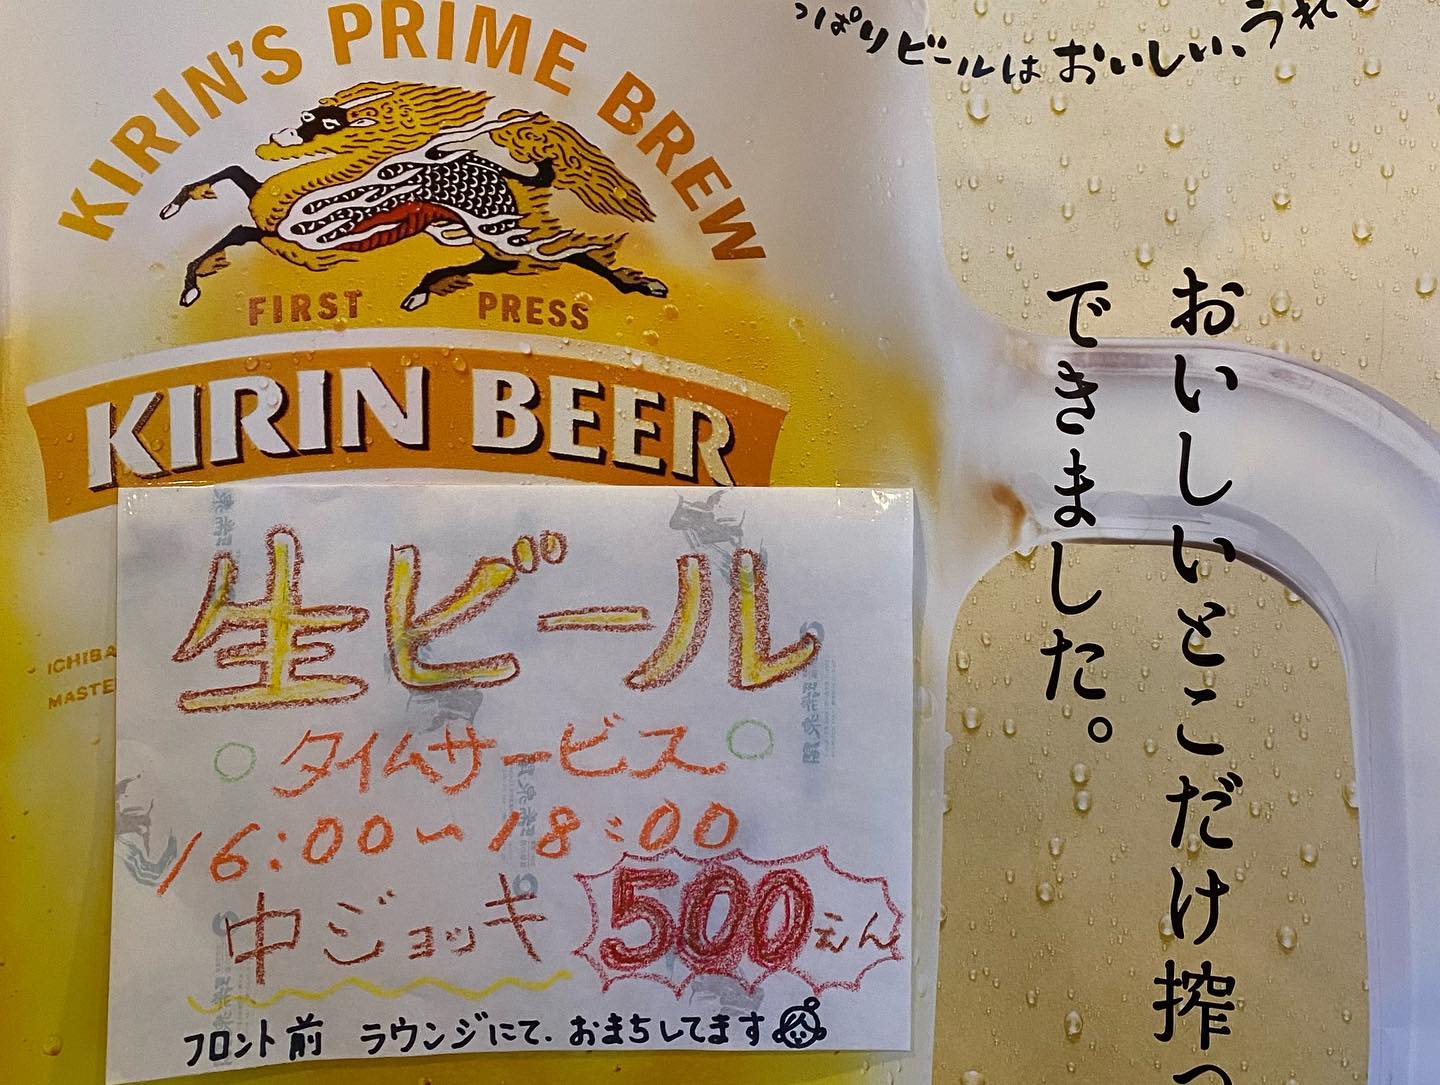 KIRIN'S PRIME BREW
FIRST PRESS
KIRIN BEER
ICHIBA
MASTE
っぱりビールはおいしい、うれし
おいしいとこだけ搾っ
できました。
生ビール
○タイムサービス○
16:00〜18:00
中ジョッキ 500えん
フロント前 ラウンジにて、おまちしてます